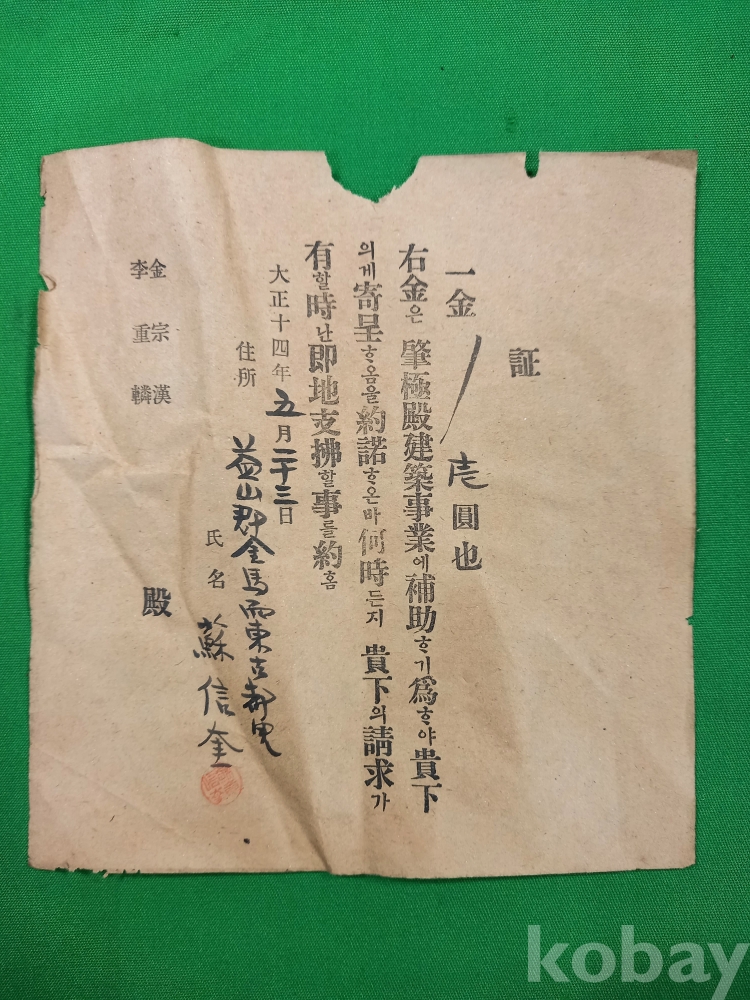 証
一金 壱圓也
右金은 肇極殿建築事業에補助ᄒᆞ기爲ᄒᆞ야貴下
의게寄呈ᄒᆞ옴을約諾ᄒᆞ온바何時든지 貴下의請求가
有할時난即地支拂할事를約홈
大正十四年五月二十三日
住所 益山郡金馬面東古都里
氏名 蘇信奎
殿
金宗漢
李重轔
kobay